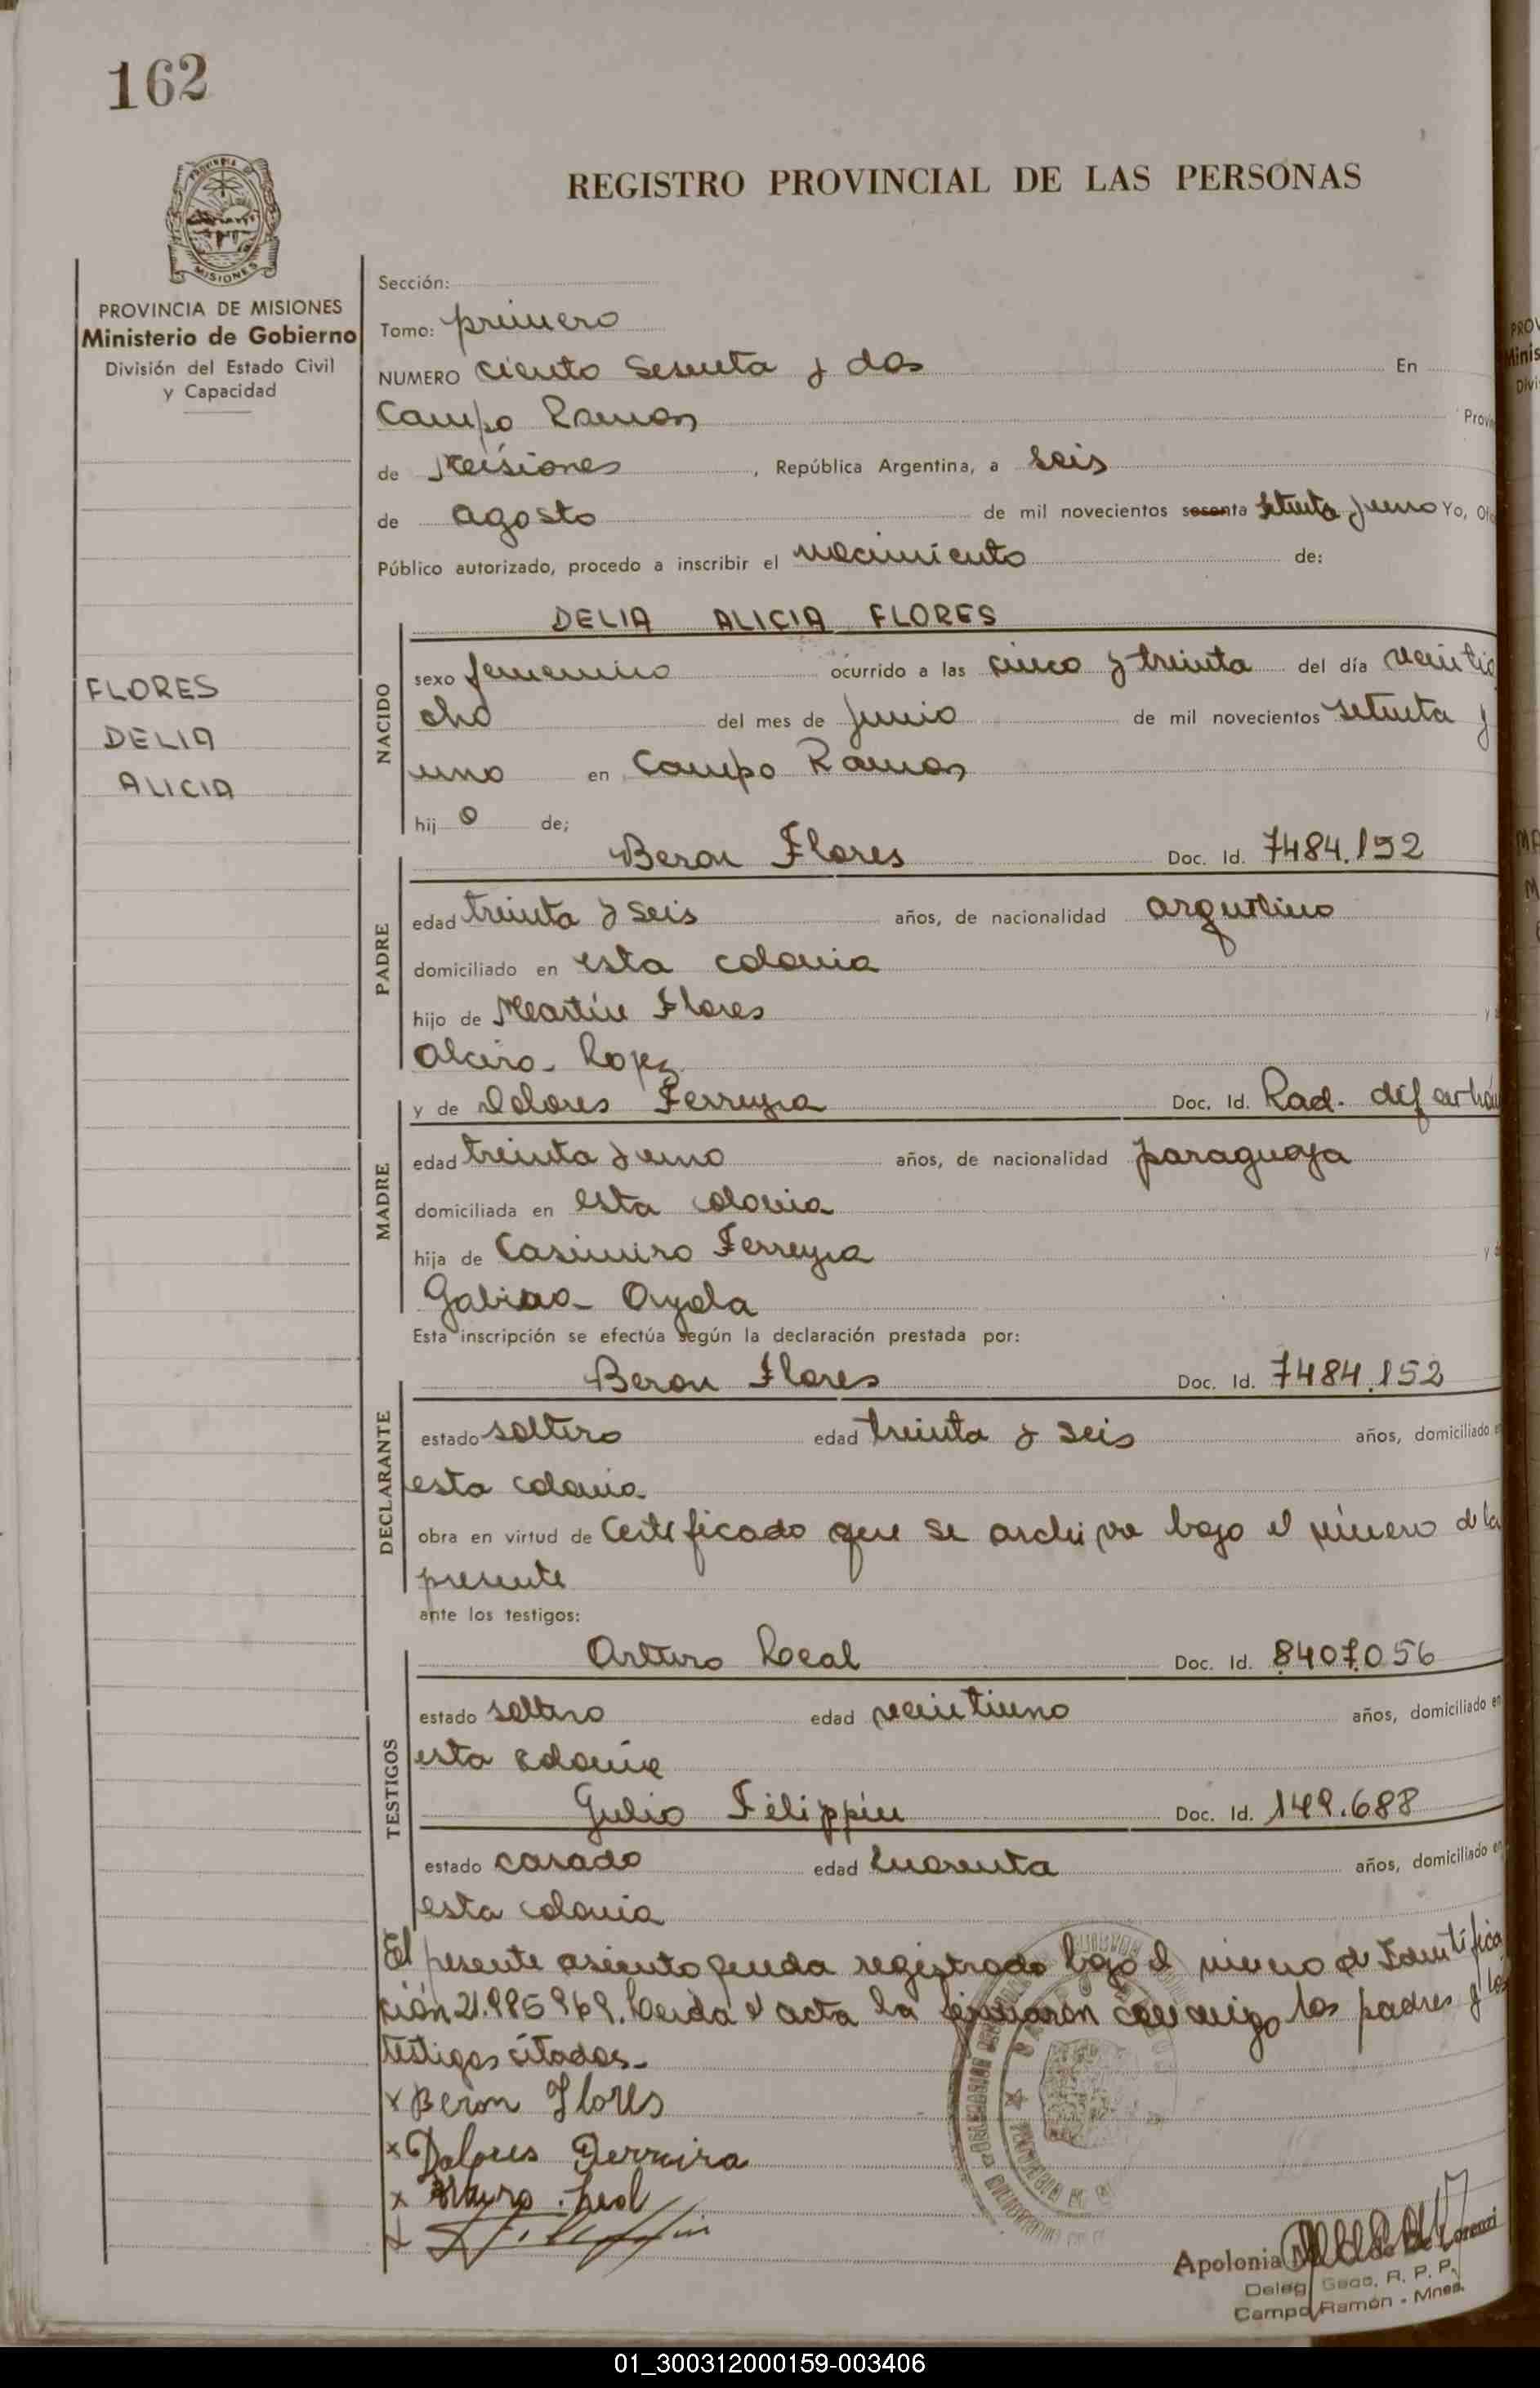 162
REGISTRO PROVINCIAL DE LAS PERSONAS
PROVINCIA DE MISIONES
Ministerio de Gobierno
División del Estado Civil
y Capacidad
FLORES
DELIA
ALICIA
Sección:
Tomo: primero
NUMERO ciento sesenta y dos En
Campo Ramon Provin
de Misiones, República Argentina, a seis
de agosto de mil novecientos sesenta setenta y uno Yo, Ofi
Público autorizado, procedo a inscribir el nacimiento de:
NACIDO
DELIA ALICIA FLORES
sexo femenino ocurrido a las cinco y treinta del día veintio
cho del mes de junio de mil novecientos setenta y
uno en Campo Ramon
hij o de;
PADRE
Beron Flores Doc. Id. 7484.152
edad treinta y seis años, de nacionalidad argentino
domiciliado en esta colonia
hijo de Martin Flores y
Alcira Lopez
MADRE
y de Dolores Ferreyra Doc. Id. Rad. def
edad treinta y uno años, de nacionalidad paraguaya
domiciliada en esta colonia
hija de Casimiro Ferreyra y
Gabina Ayala
Esta inscripción se efectúa según la declaración prestada por:
DECLARANTE
Beron Flores Doc. Id. 7484.152
estado soltero edad treinta y seis años, domiciliado en
esta colonia
obra en virtud de Certificado que se archiva bajo el número de la
presente
ante los testigos:
TESTIGOS
Arturo Leal Doc. Id. 8407.056
estado soltero edad veintiuno años, domiciliado en
esta colonia
Julio Filippin Doc. Id. 149.688
estado casado edad cuarenta años, domiciliado en
esta colonia
El presente asiento queda registrado bajo el número de Identifica
ción 21.985969. Leida el acta la firmaron conmigo los padres y los
testigos citados.
x Beron Flores
x Dolores Ferreira
x Arturo Leal
x
Apolonia de De Lorenzi
Deleg. Secc. R. P. P.
Campo Ramón - Mnes.
01_300312000159-003406